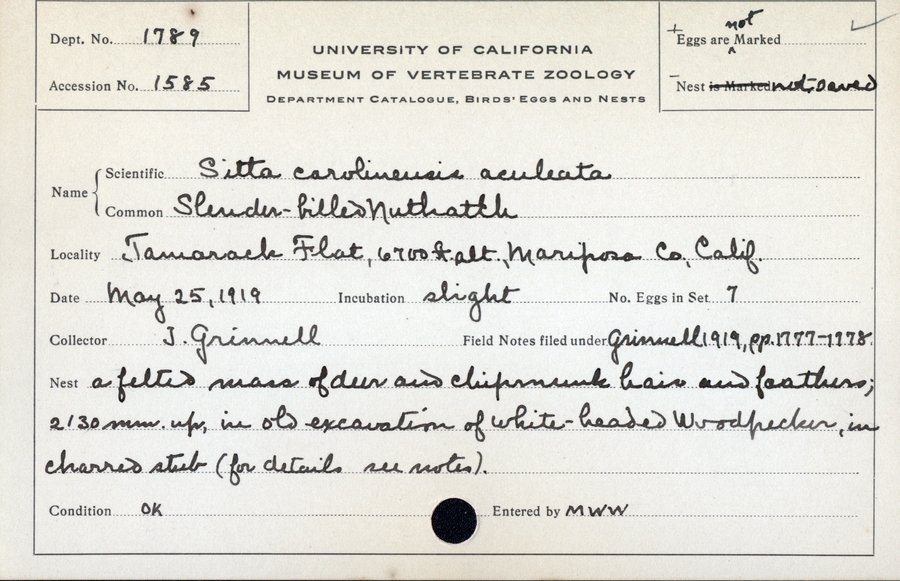 Dept. No. 1789
Accession No. 1585
UNIVERSITY OF CALIFORNIA
MUSEUM OF VERTEBRATE ZOOLOGY
DEPARTMENT CATALOGUE, BIRDS' EGGS AND NESTS
+ Eggs are not Marked
- Nest is Marked not saved
Name
Scientific Sitta carolinensis aculeata
Common Slender-billed Nuthatch
Locality Tamarack Flat, 6700 ft. alt., Mariposa Co., Calif.
Date May 25, 1919 Incubation slight No. Eggs in Set 7
Collector J. Grinnell Field Notes filed under Grinnell 1919, pp. 1777-1778.
Nest a felted mass of deer and chipmunk hair and feathers;
2130 mm. up, in old excavation of white-headed Woodpecker, in
charred stub (for details see notes).
Condition OK Entered by MWW